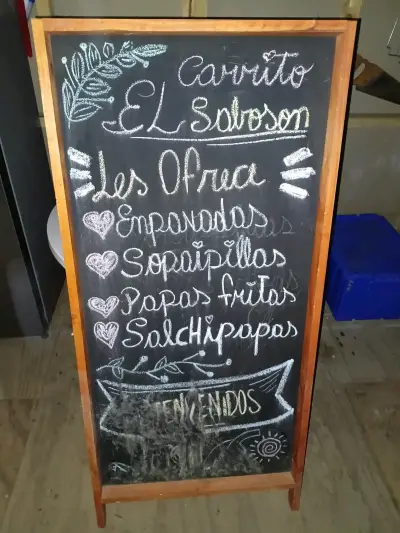 Carrito
EL Saboson
Les Ofrece
Enpanadas
Sopaipillas
Papas fritas
SalcHipapas
BIENVENIDOS